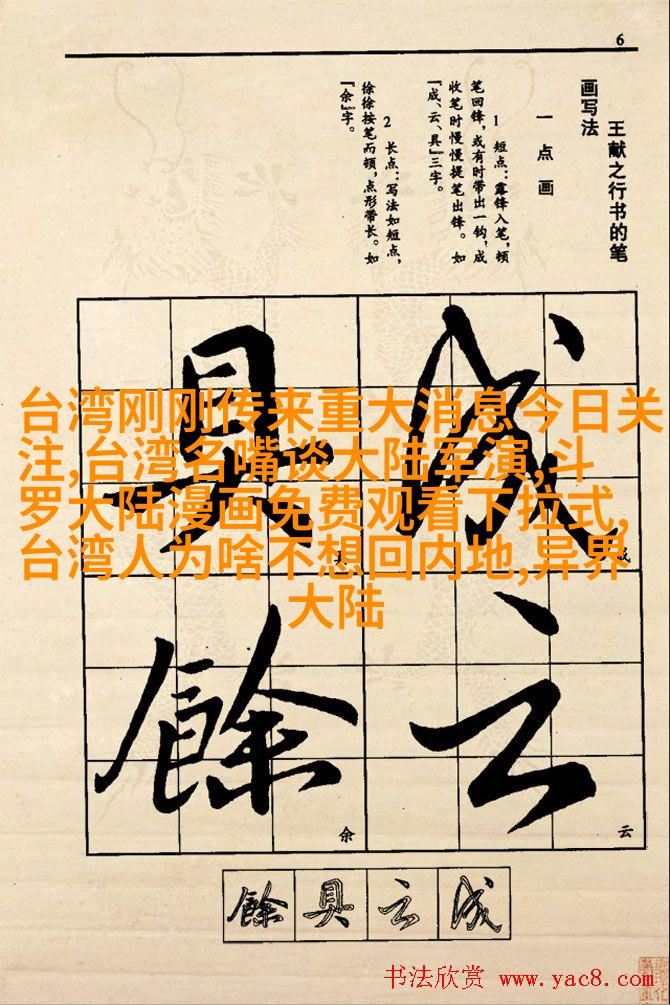 6
王献之行书的笔
画写法
一点画
1 短点：露锋入笔，顿
笔回锋，或有时带出一钩，成
收笔时慢慢提笔出锋。如
「成、云、具」三字。
2 长点：写法如短点，
徐徐按笔而顿，点形带长。如
「余」字。
台湾刚刚传来重大消息今日关
注,台湾名嘴谈大陆军演,斗
罗大陆漫画免费观看下拉式,
台湾人为啥不想回内地,异界
大陆
成
成
具
具
云
云
餘
余
餘具云成
书法欣赏 www.yac8.com